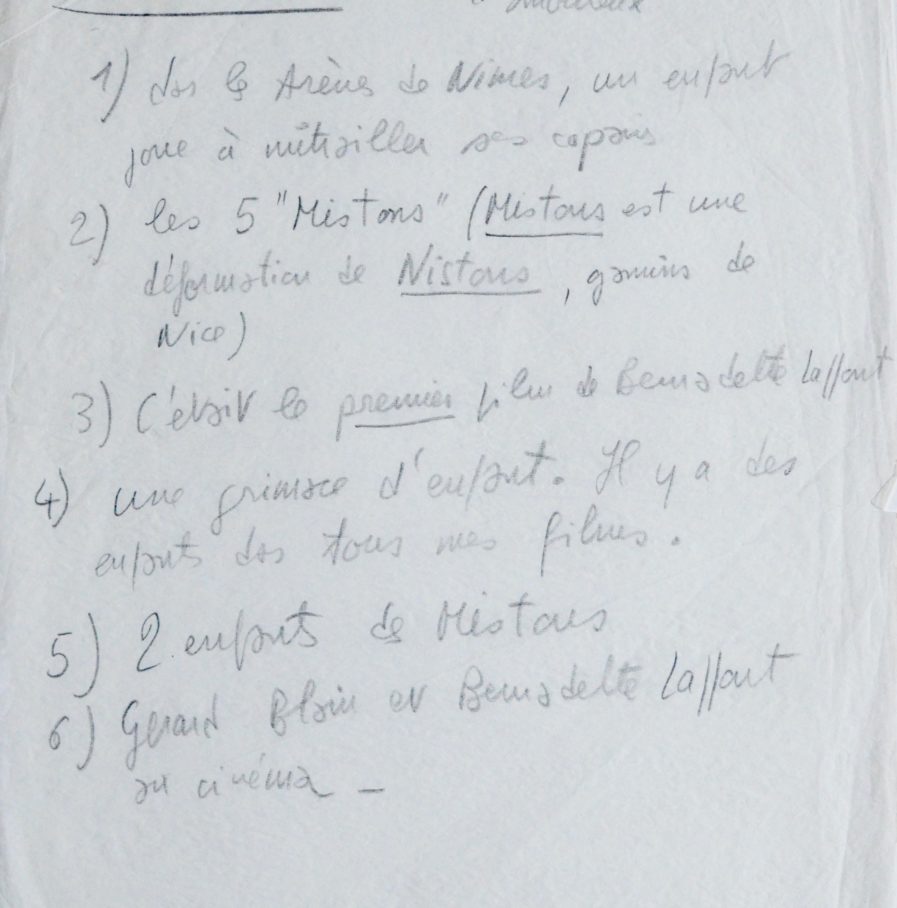 1) ds les Arènes de Nîmes, un enfant
joue à mitrailler ses copains
2) les 5 "Mistons" (Mistons est une
déformation de Nistons, gamins de
Nice)
3) C'était le premier film de Bernadette Laffont
4) une grimace d'enfant. Il y a des
enfants ds tous mes films.
5) 2 enfants des Mistons
6) Gerard Blain et Bernadette Laffont
au cinéma -